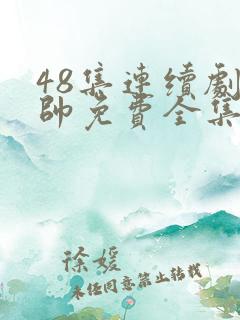 48集連續劇
帥免費全集
徐媛
未经同意禁止转载